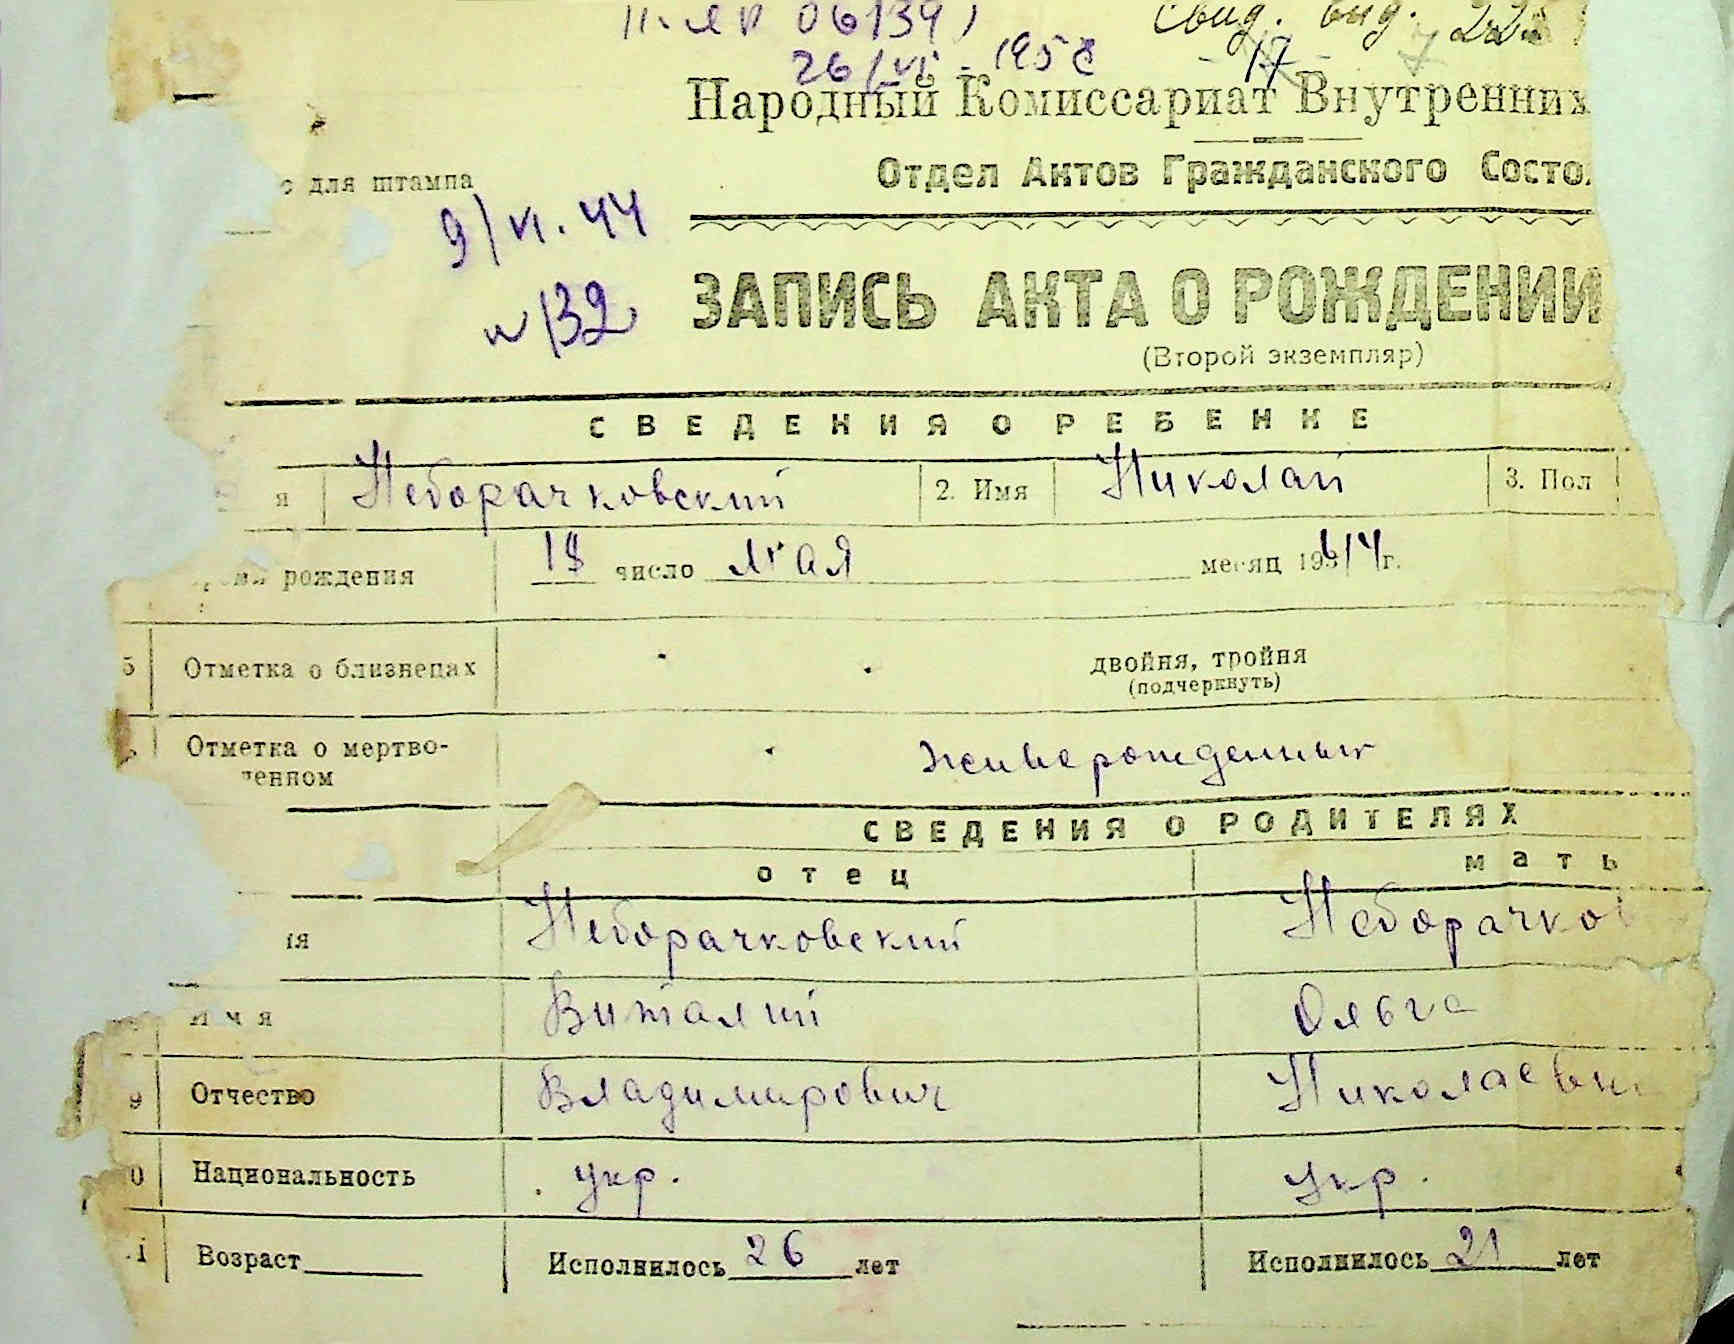 II-ЯР 061391
Свид. выд. 22
26/VI - 1958
17
Народный Комиссариат Внутренних
Отдел Актов Гражданского Состо
о для штампа
9/VI. 44
N 132
ЗАПИСЬ АКТА О РОЖДЕНИИ
(Второй экземпляр)
СВЕДЕНИЯ О РЕБЕНКЕ
я Неборачковский 2. Имя Николай 3. Пол
ремя рождения 18 число мая месяц 1944 г.
5 Отметка о близнецах двойня, тройня
(подчеркнуть)
Отметка о мертво-
денном живерожденным
СВЕДЕНИЯ О РОДИТЕЛЯХ
отец мать
ия Неборачковский Неборачков
Имя Виталий Ольга
9 Отчество Владимирович Николаевн
0 Национальность укр. укр.
1 Возраст Исполнилось 26 лет Исполнилось 21 лет